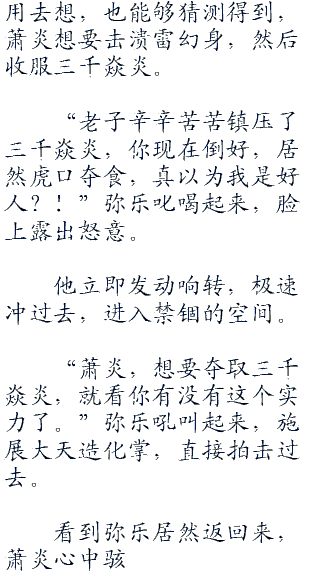 用去想，也能够猜测得到，
萧炎想要击溃雷幻身，然后
收服三千焱炎。
“老子辛辛苦苦镇压了
三千焱炎，你现在倒好，居
然虎口夺食，真以为我是好
人？！”弥乐叱喝起来，脸
上露出怒意。
他立即发动响转，极速
冲过去，进入禁锢的空间。
“萧炎，想要夺取三千
焱炎，就看你有没有这个实
力了。”弥乐吼叫起来，施
展大天造化掌，直接拍击过
去。
看到弥乐居然返回来，
萧炎心中骇